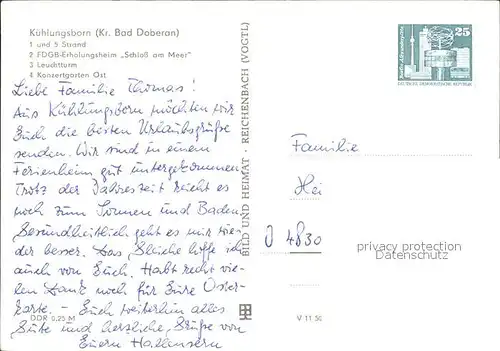 Kühlungsborn (Kr. Bad Doberan)
1 und 5 Strand
2 FDGB-Erholungsheim „Schloß am Meer"
3 Leuchtturm
4 Konzertgarten Ost
Liebe Familie Thomas!
Aus Kühlungsborn möchten wir
Euch die besten Urlaubsgrüße
senden. Wir sind in einem
Ferienheim gut untergekommen.
Trotz der Jahreszeit reicht es
noch zum Sonnen und Baden.
Gesundheitlich geht es mir wie-
der besser. Das Gleiche hoffe ich
auch von Euch. Habt recht vie-
len Dank noch für Eure Oster-
karte. – Euch weiterhin alles
Gute und herzliche Grüße von
Euern Hallensern
DDR 0,25 M
BILD UND HEIMAT · REICHENBACH (VOGTL)
V 11 50
25
DEUTSCHE DEMOKRATISCHE REPUBLIK
Familie
Hei
4830
privacy protection
Datenschutz